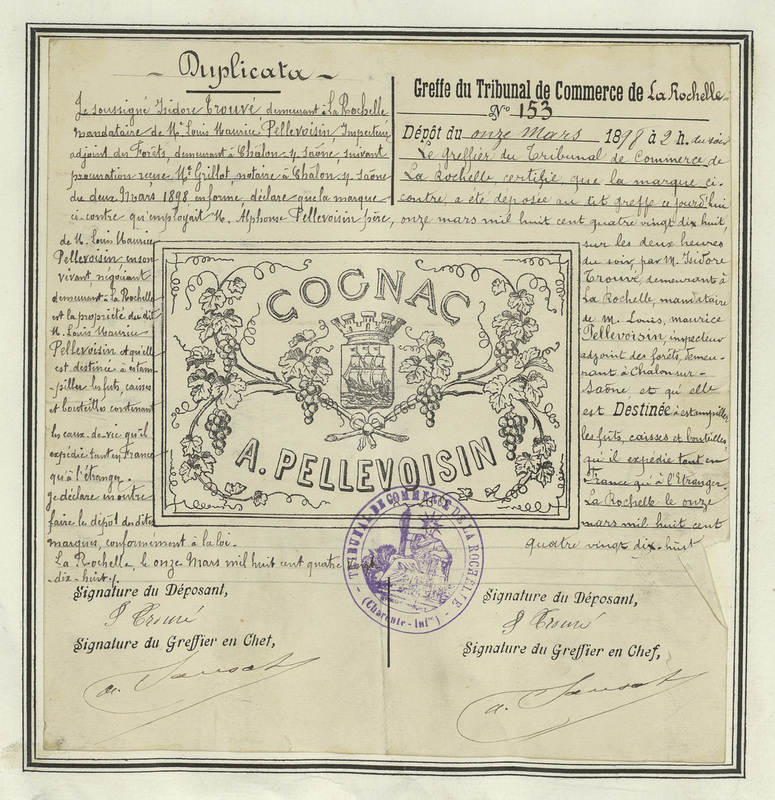 Duplicata
Je soussigné Isidore Trouvé demeurant à La Rochelle
mandataire de Mr Louis Maurice Pellevoisin Inspecteur
adjoint des Forêts, demeurant à Châlon s/ Saône, suivant
procuration reçue Me Grillot, notaire à Châlon s/ Saône
du deux Mars 1898 informe, déclare que la marque
ci-contre qu'employait M. Alphonse Pellevoisin père,
de M. Louis Maurice
Pellevoisin en son
vivant, négociant
demeurant à La Rochelle
est la propriété du dit
M. Louis Maurice
Pellevoisin et qu'elle
est destinée à estam-
piller les fûts, caisses
et bouteilles contenant
les eaux-de-vie qu'il
expédie tant en France
qu'à l'étranger.
Je déclare en outre
faire le dépôt des dites
marques, conformément à la loi.
La Rochelle, le onze Mars mil huit cent quatre vingt
dix-huit.
Signature du Déposant,
I Trouvé
Signature du Greffier en Chef,
Greffe du Tribunal de Commerce de La Rochelle
No 153
Dépôt du onze Mars 1898 à 2 h. du soir
Le greffier du Tribunal de Commerce de
La Rochelle certifie que la marque ci-
contre a été déposée au dit greffe ce jourd'hui
onze mars mil huit cent quatre vingt dix huit,
sur les deux heures
du soir, par M. Isidore
Trouvé, demeurant à
La Rochelle, mandataire
de M. Louis, maurice
Pellevoisin, inspecteur
adjoint des forêts, demeu-
rant à Chalon-sur-
Saône, et qu'elle
est Destinée à estampiller
les fûts, caisses et bouteilles
qu'il expédie tant en
France qu'à l'Etranger
La Rochelle le onze
mars mil huit cent
quatre vingt dix-huit
Signature du Déposant,
I Trouvé
Signature du Greffier en Chef,
COGNAC
A. PELLEVOISIN
TRIBUNAL DE COMMERCE DE LA ROCHELLE
(Charente-Infre)